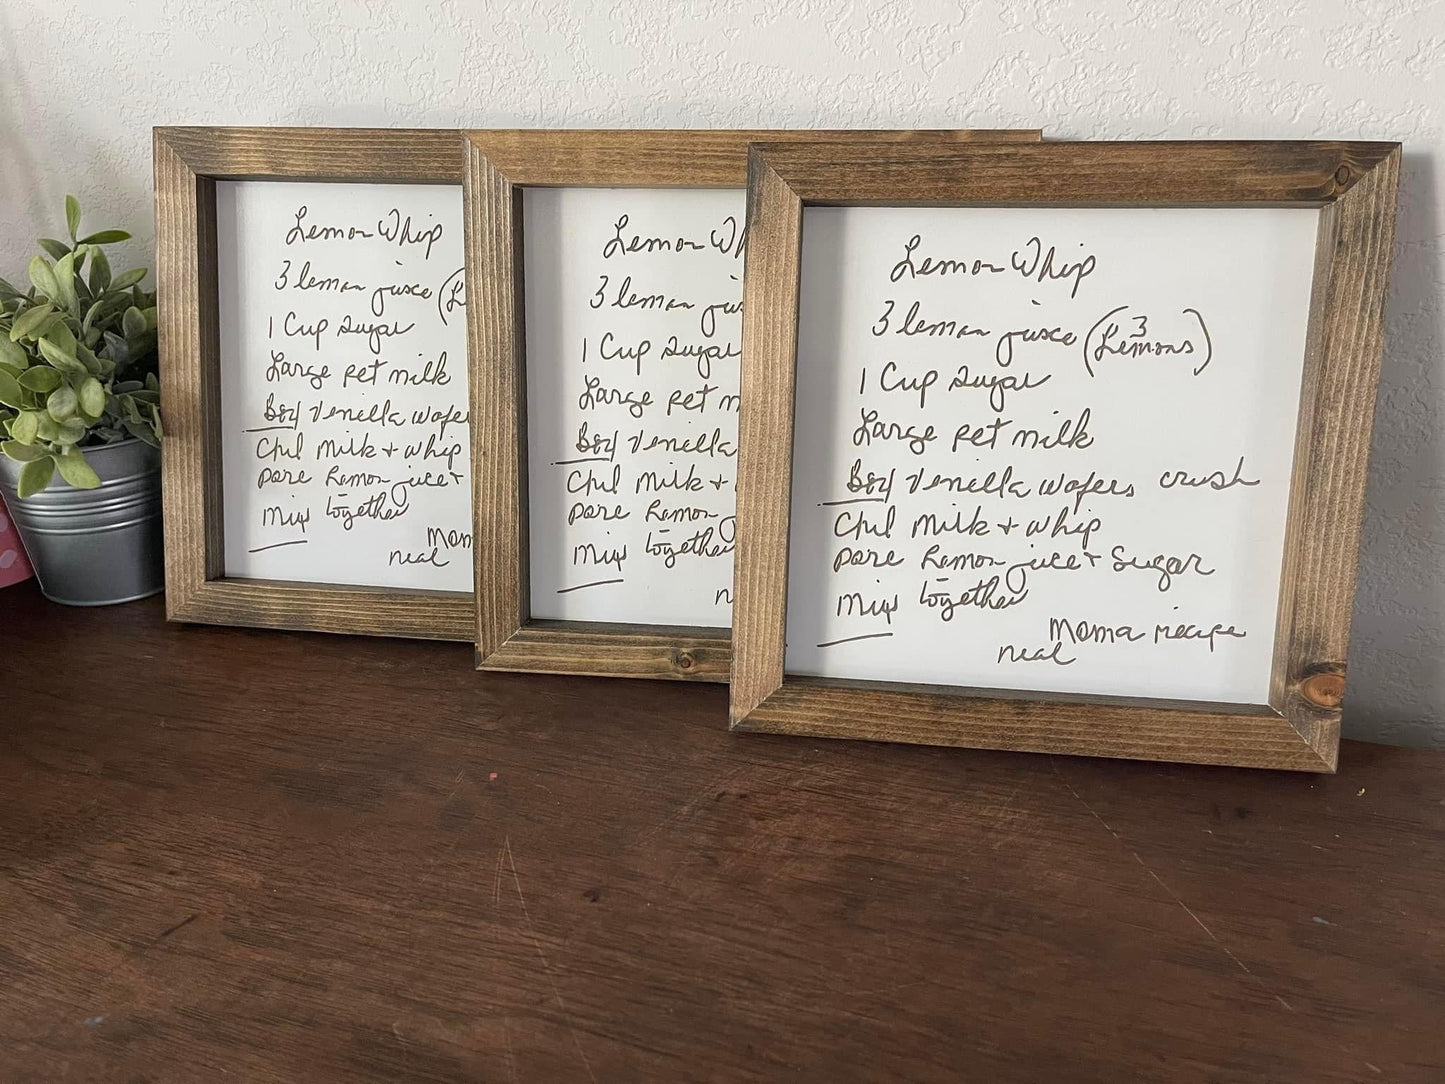 Lemon Whip
3 lemon juice (L
1 Cup sugar
Large pet milk
Box Venella wafers
Chil Milk + whip
pore Lemon juce +
Mix together
Mom
neal
Lemon Wh
3 lemon juic
1 Cup sugar
Large pet m
Box Venella
Chil Milk +
pore Lemon
Mix together
n
Lemon Whip
3 lemon juice (3 Lemons)
1 Cup sugar
Large pet milk
Box Venella wafers crush
Chil Milk + whip
pore Lemon juce + Sugar
Mix together
Moma recipe
neal